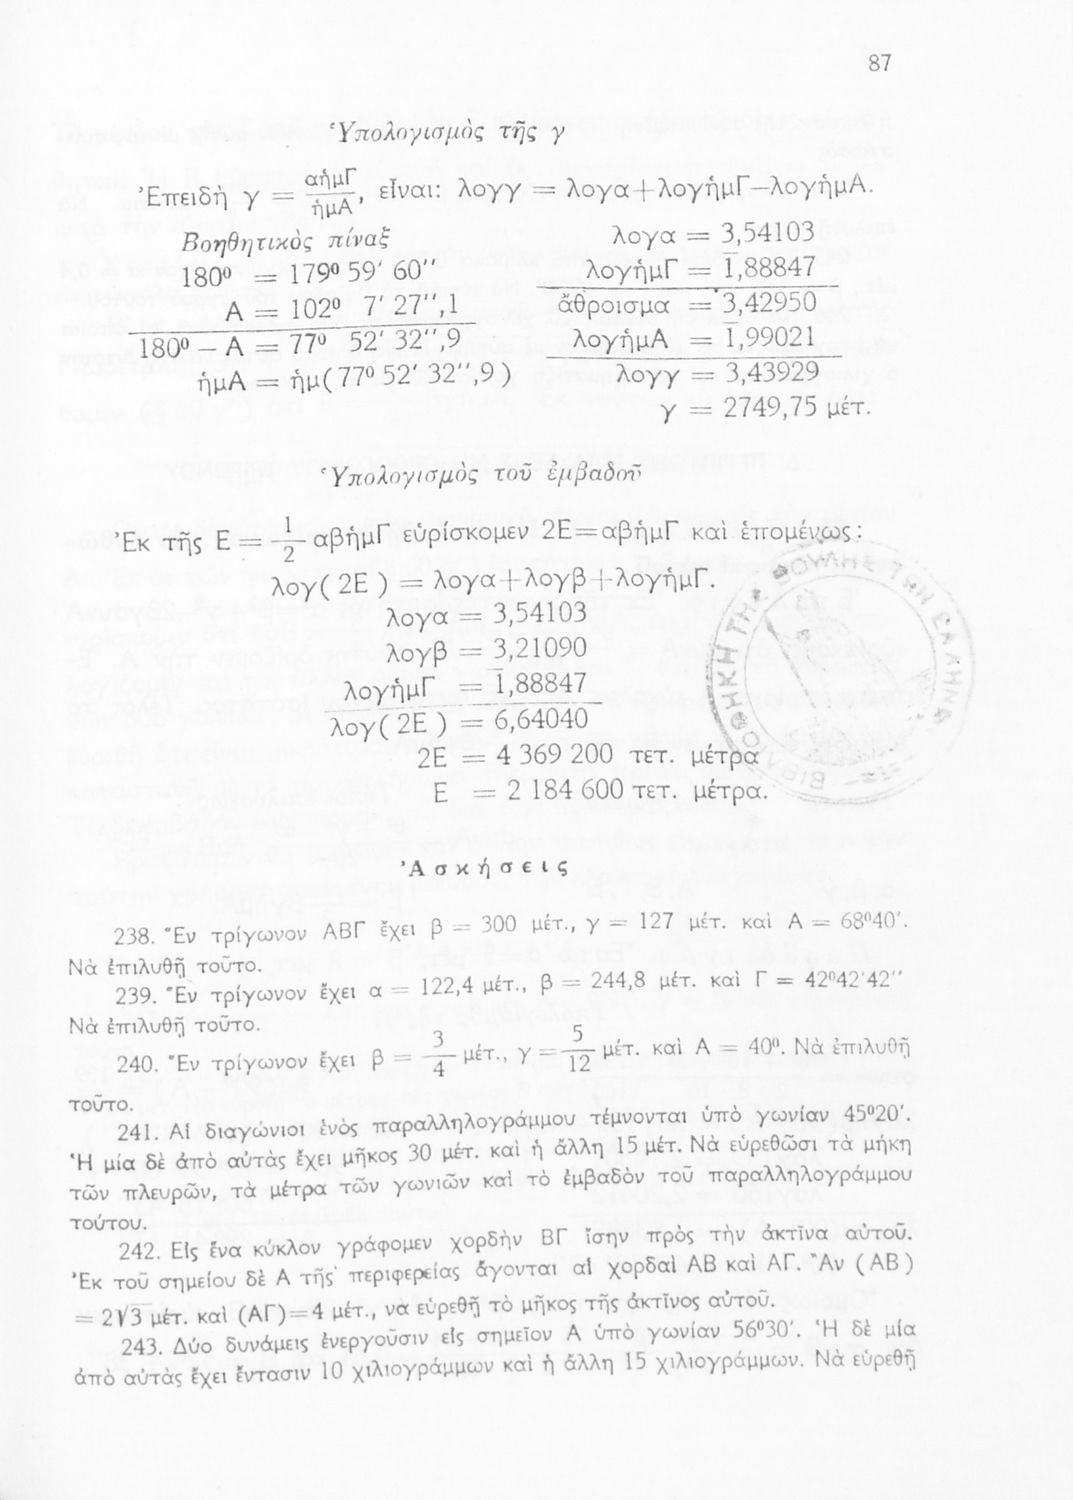 87
Ὑπολογισμὸς τῆς γ
Ἐπειδὴ γ = αἡμΓ/ἡμΑ, εἶναι: λογγ = λογα+λογἡμΓ—λογἡμΑ.
Βοηθητικὸς πίναξ
180⁰ = 179⁰ 59′ 60″
Α = 102⁰ 7′ 27″,1
180⁰ — Α = 77⁰ 52′ 32″,9
ἡμΑ = ἡμ(77⁰ 52′ 32″,9)
λογα = 3,54103
λογἡμΓ = 1̅,88847
ἄθροισμα = 3,42950
λογἡμΑ = 1̅,99021
λογγ = 3,43929
γ = 2749,75 μέτ.
Ὑπολογισμὸς τοῦ ἐμβαδοῦ
Ἐκ τῆς Ε = 1/2 αβἡμΓ εὑρίσκομεν 2Ε=αβἡμΓ καὶ ἑπομένως:
λογ( 2Ε ) = λογα+λογβ+λογἡμΓ.
λογα = 3,54103
λογβ = 3,21090
λογἡμΓ = 1̅,88847
λογ( 2Ε ) = 6,64040
2Ε = 4 369 200 τετ. μέτρα
Ε = 2 184 600 τετ. μέτρα.
Ἀσκήσεις
238. Ἓν τρίγωνον ΑΒΓ ἔχει β = 300 μέτ., γ = 127 μέτ. καὶ Α = 68⁰40′.
Νὰ ἐπιλυθῇ τοῦτο.
239. Ἓν τρίγωνον ἔχει α = 122,4 μέτ., β = 244,8 μέτ. καὶ Γ = 42⁰42′42″
Νὰ ἐπιλυθῇ τοῦτο.
240. Ἓν τρίγωνον ἔχει β = 3/4 μέτ., γ = 5/12 μέτ. καὶ Α = 40⁰. Νὰ ἐπιλυθῇ
τοῦτο.
241. Αἱ διαγώνιοι ἑνὸς παραλληλογράμμου τέμνονται ὑπὸ γωνίαν 45⁰20′.
Ἡ μία δὲ ἀπὸ αὐτὰς ἔχει μῆκος 30 μέτ. καὶ ἡ ἄλλη 15 μέτ. Νὰ εὑρεθῶσι τὰ μήκη
τῶν πλευρῶν, τὰ μέτρα τῶν γωνιῶν καὶ τὸ ἐμβαδὸν τοῦ παραλληλογράμμου
τούτου.
242. Εἰς ἕνα κύκλον γράφομεν χορδὴν ΒΓ ἴσην πρὸς τὴν ἀκτῖνα αὐτοῦ.
Ἐκ τοῦ σημείου δὲ Α τῆς περιφερείας ἄγονται αἱ χορδαὶ ΑΒ καὶ ΑΓ. Ἂν (ΑΒ)
= 2√3 μέτ. καὶ (ΑΓ)=4 μέτ., νὰ εὑρεθῇ τὸ μῆκος τῆς ἀκτῖνος αὐτοῦ.
243. Δύο δυνάμεις ἐνεργοῦσιν εἰς σημεῖον Α ὑπὸ γωνίαν 56⁰30′. Ἡ δὲ μία
ἀπὸ αὐτὰς ἔχει ἔντασιν 10 χιλιογράμμων καὶ ἡ ἄλλη 15 χιλιογράμμων. Νὰ εὑρεθῇ
ΒΟΥΛΗΣ ΤΩΝ ΕΛΛΗΝΩΝ